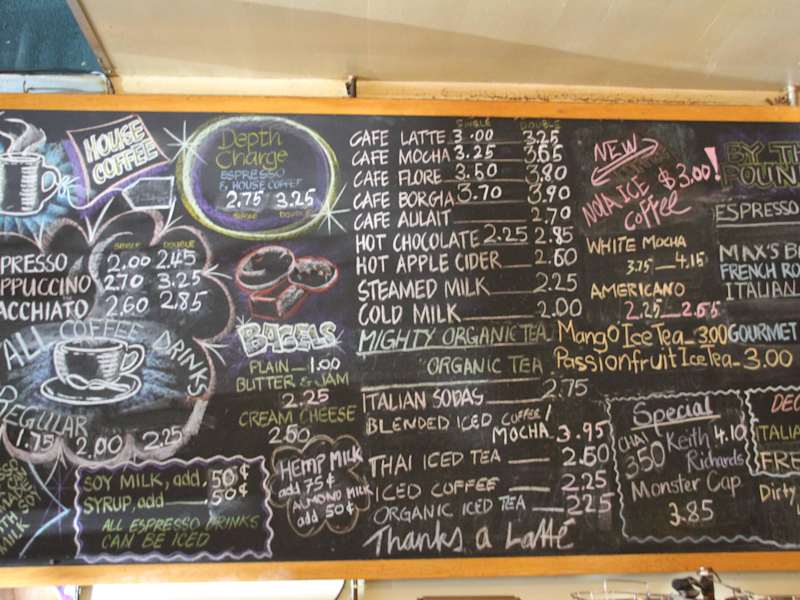 HOUSE
COFFEE
SINGLE DOUBLE
PRESSO 2.00 2.45
PPUCCINO 2.70 3.25
ACCHIATO 2.60 2.85
ALL COFFEE DRINKS
REGULAR
1.75 2.00 2.25
Depth
Charge
ESPRESSO
& HOUSE COFFEE
2.75 3.25
SINGLE DOUBLE
BAGELS
PLAIN 1.00
BUTTER & JAM
2.25
CREAM CHEESE
2.50
SOY MILK, add .50¢
SYRUP, add .50¢
ALL ESPRESSO DRINKS
CAN BE ICED
HEMP MILK
add 75¢
ALMOND MILK
add 50¢
SINGLE DOUBLE
CAFE LATTE 3.00 3.25
CAFE MOCHA 3.25 3.65
CAFE FLORE 3.50 3.80
CAFE BORGHA 3.70 3.90
CAFE AULAIT 2.70
HOT CHOCOLATE 2.25 2.85
HOT APPLE CIDER 2.50
STEAMED MILK 2.25
COLD MILK 2.00
MIGHTY ORGANIC TEA
ORGANIC TEA
2.75
ITALIAN SODAS
BLENDED ICED COFFEE/
MOCHA 3.95
THAI ICED TEA 2.50
ICED COFFEE 2.25
ORGANIC ICED TEA 2.25
Thanks a Latté
NEW
NOLA ICE $3.00!
Coffee
WHITE MOCHA
3.75 4.15
AMERICANO
2.25 2.55
Mango Ice Tea 3.00
Passionfruit Ice Tea 3.00
Special
CHAI
3.50
Keith 4.10
Richards
Monster Cap
3.85
BY TH
POUN
ESPRESSO
MAX'S B
FRENCH RO
ITALIAN
GOURMET
DEC
ITALIA
FRE
Dirty